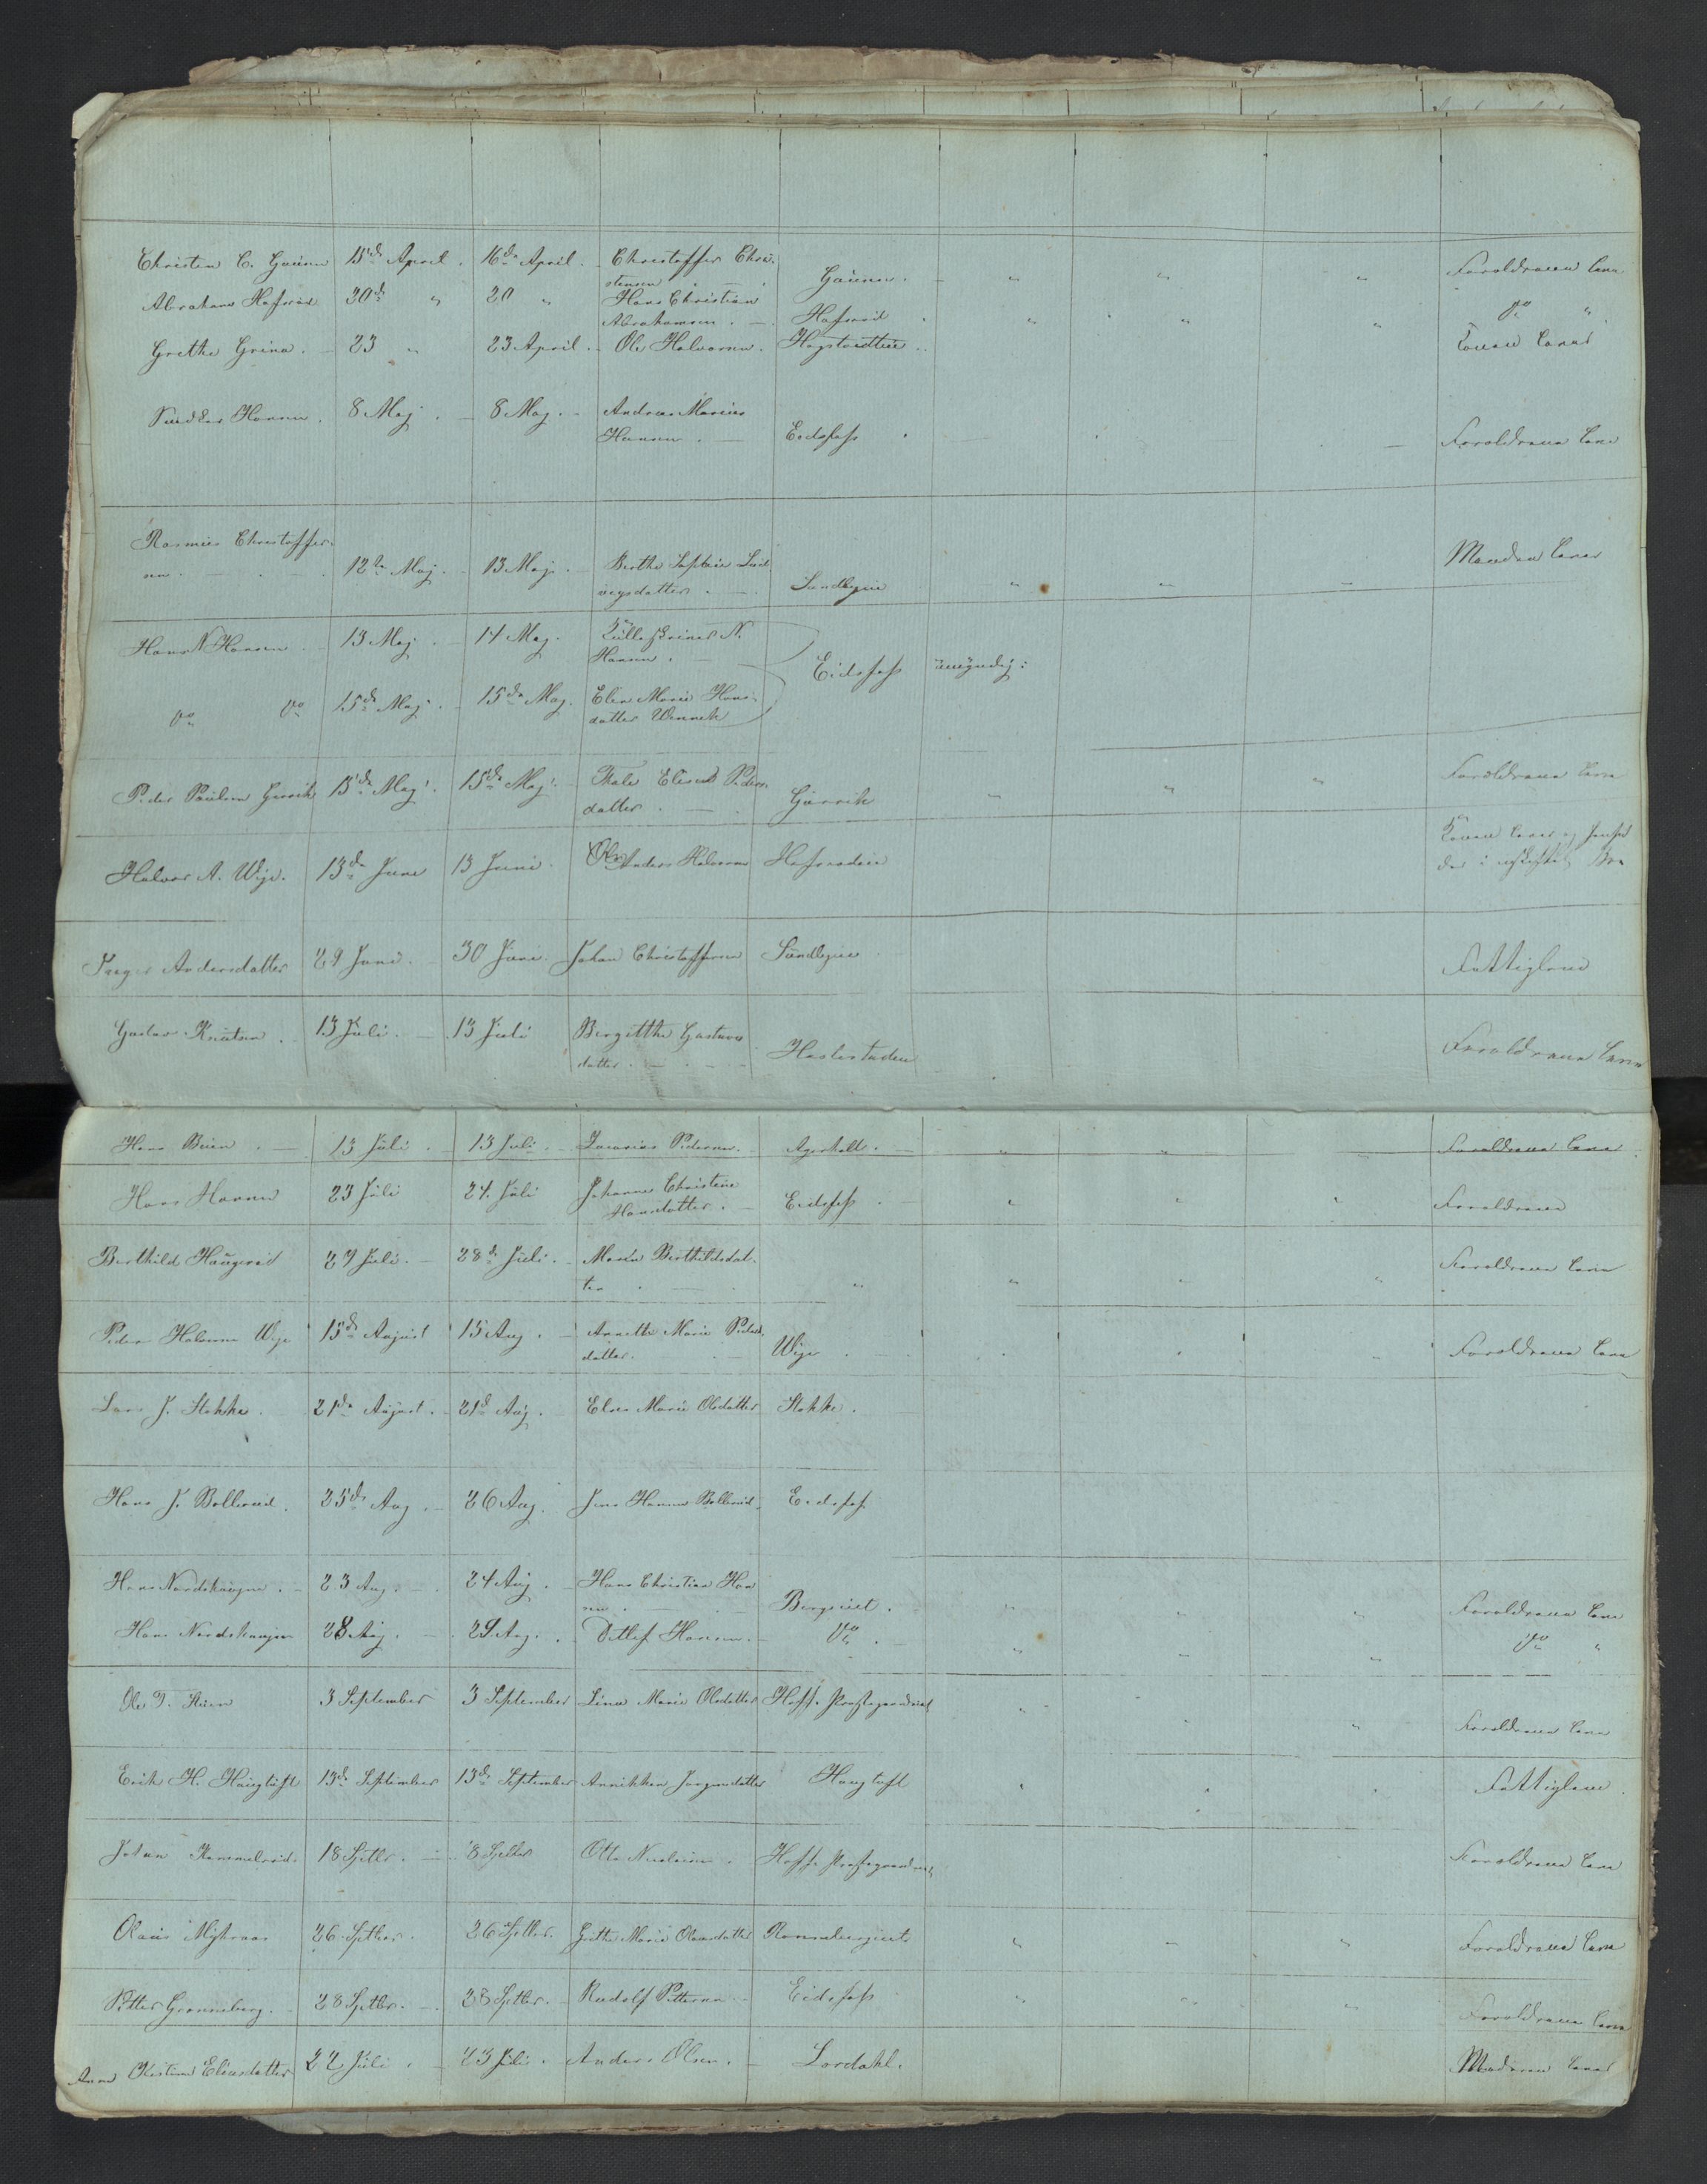 Christen C. Gaúsen 15de April 16de April Christoffer Chri-
stensen Gaúsen " " " Foreldrene leve
Abraham Hafsrød 20de " 20 " Hans Christian
Abrahamsen Hafsrød " " " do "
Grethe Grina 23 " 23 April Ole Halvorsen Hagstvedteie Konen lever
Hansen 8 Maj 8 Maj Andreas Marius
Hansen Eidsfoss Foreldrene leve
Rasmus Christoffer-
sen 12te Maj 13 Maj Berthe Sophie Lud-
vigsdatter Sundbyeie " " " Manden lever
Hans N Hansen 13 Maj 14 Maj N.
Hansen
Eidsfoss úmÿndig:
do do 15de Maj 15de Maj Elen Marie Hans-
datter Wennek
Peder Paúlsen Gúsvik 15de Maj 15de Maj Thale Elise Peders-
datter Gúsvik " " " Foreldrene leve
Halvor A. Wÿe 13de Juni 13 Juni Ole Anders Halvorsen Hafsrødeie Konen lever og
der i uskiftet Bo
Inger Andersdatter 29 Juni 30 Júni Johan Christoffersen Sundbyeie Fattiglem
Gústav Knútsen 13 Júli 13 Júli Bergitthe Gústavs
datter Haslestadeie Foreldrene leve
Hans Búen 13 Júli 13 Júli Zacarias Pedersen Agerholt " " " Foreldrene leve
Hans Hansen 23 Júli 24 Júli Johanne Christine
Hansdatter Eidsfoss " " " Foreldrene
Berthild Haúgerød 27 Júli 28de Júli Maren Berthildsdat-
ter " " " " Foreldrene leve
Peder Halvorsen Wÿe 15de August 15 Aug. Annette Marie Peders
datter Wÿe " " " Foreldrene leve
Lars J. Stokke 21de Aúgúst 21de Aúg. Elen Marie Olsdatter Stokke
Hans J. Bollerúd 25de Aúg 26 Aúg Jens Hansen Bollerúd Eidsfoss
Hans Nordskaúgen 23 Aúg. 24 Aúg Hans Christian Han
sen Bergseiet " " " Foreldrene leve
Hans Nordskaúgen 28 Aúg. 29 Aug. Ditlef Hansen do " " " do "
Ole T. Stúen 3 September 3 September Lina Marie Olsdatter Hoff Prestegaardseiet " " " Foreldrene leve
Erik H. Haúgtúft 13de September 13de September Annikken Jørgensdatter Haúgtúft " " " Fattiglem
Johan Kammelrúd 18 Septbr. 18 Septbr Otto Nicolaisen Hoff Prestegaardseiet Foreldrene leve
Olaús Mÿhraas 26 Septbr. 26 Septbr. Grethe Marie Olaúsdatter Rønnebergseiet " " " Foreldrene leve
Petter Grønneberg 28 Septbr. 28 Septbr. Rudolf Pettersen Eidsfoss " " " Foreldrene leve
Anne Kristine Eliasdatter 22 Júli 23 Júli Anders Olsen Lørdahl Moderen lever